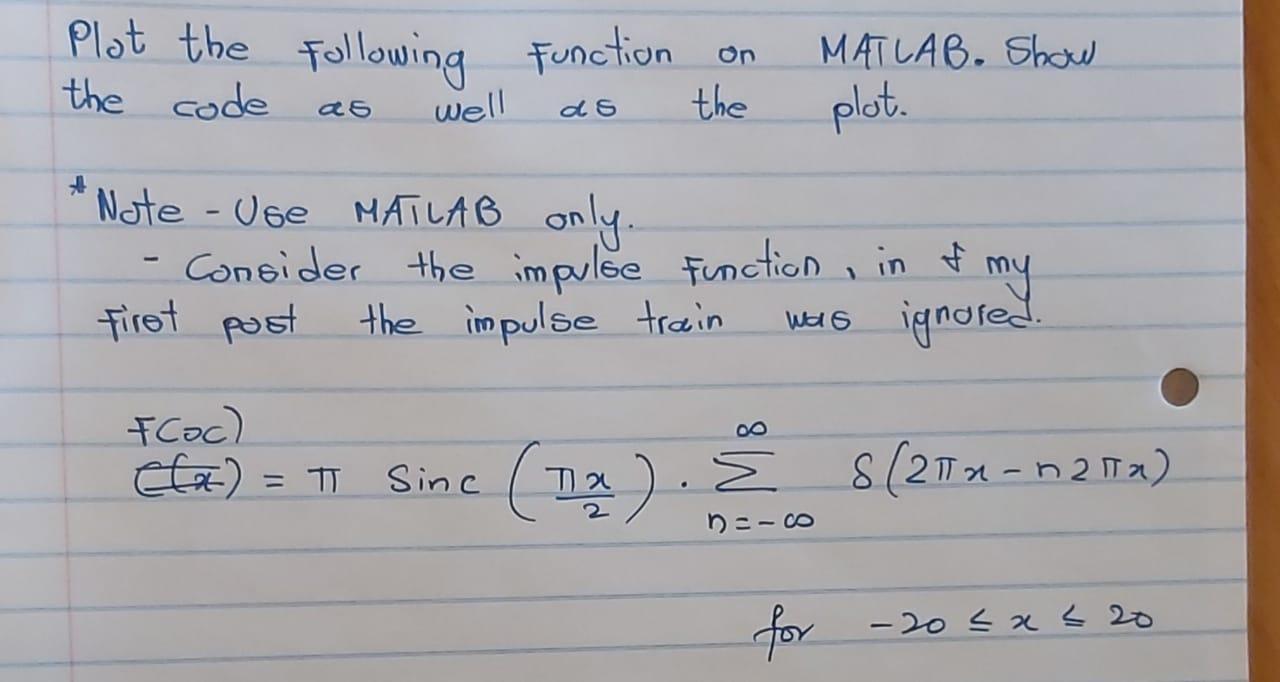 Plot the following function on MATLAB. Show
the code as well as the plot.
* Note - Use MATLAB only.
- Consider the impulse function, in my
first post the impulse train was ignored.
F(x)
C(x) = π Sinc (πx/2) . ∑_{n=-∞}^{∞} δ(2πx - n2πx)
for -20 ≤ x ≤ 20